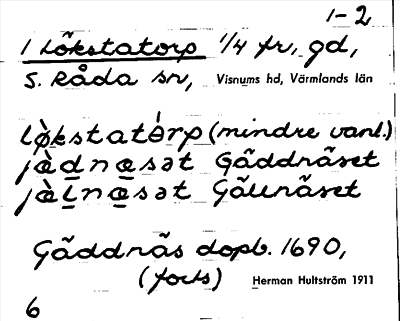 1-2
1 Lökstatorp 1/4 fr, gd,
S. Råda sn, Visnums hd, Värmlands län
lø̀kstatȯ́rp (mindre vanl.)
jæ̀d̲næ̲sət Gäddnäset
jæ̀l̲næ̲sət Gällnäset
Gäddnäs dopb. 1690,
(forts) Herman Hultström 1911
6